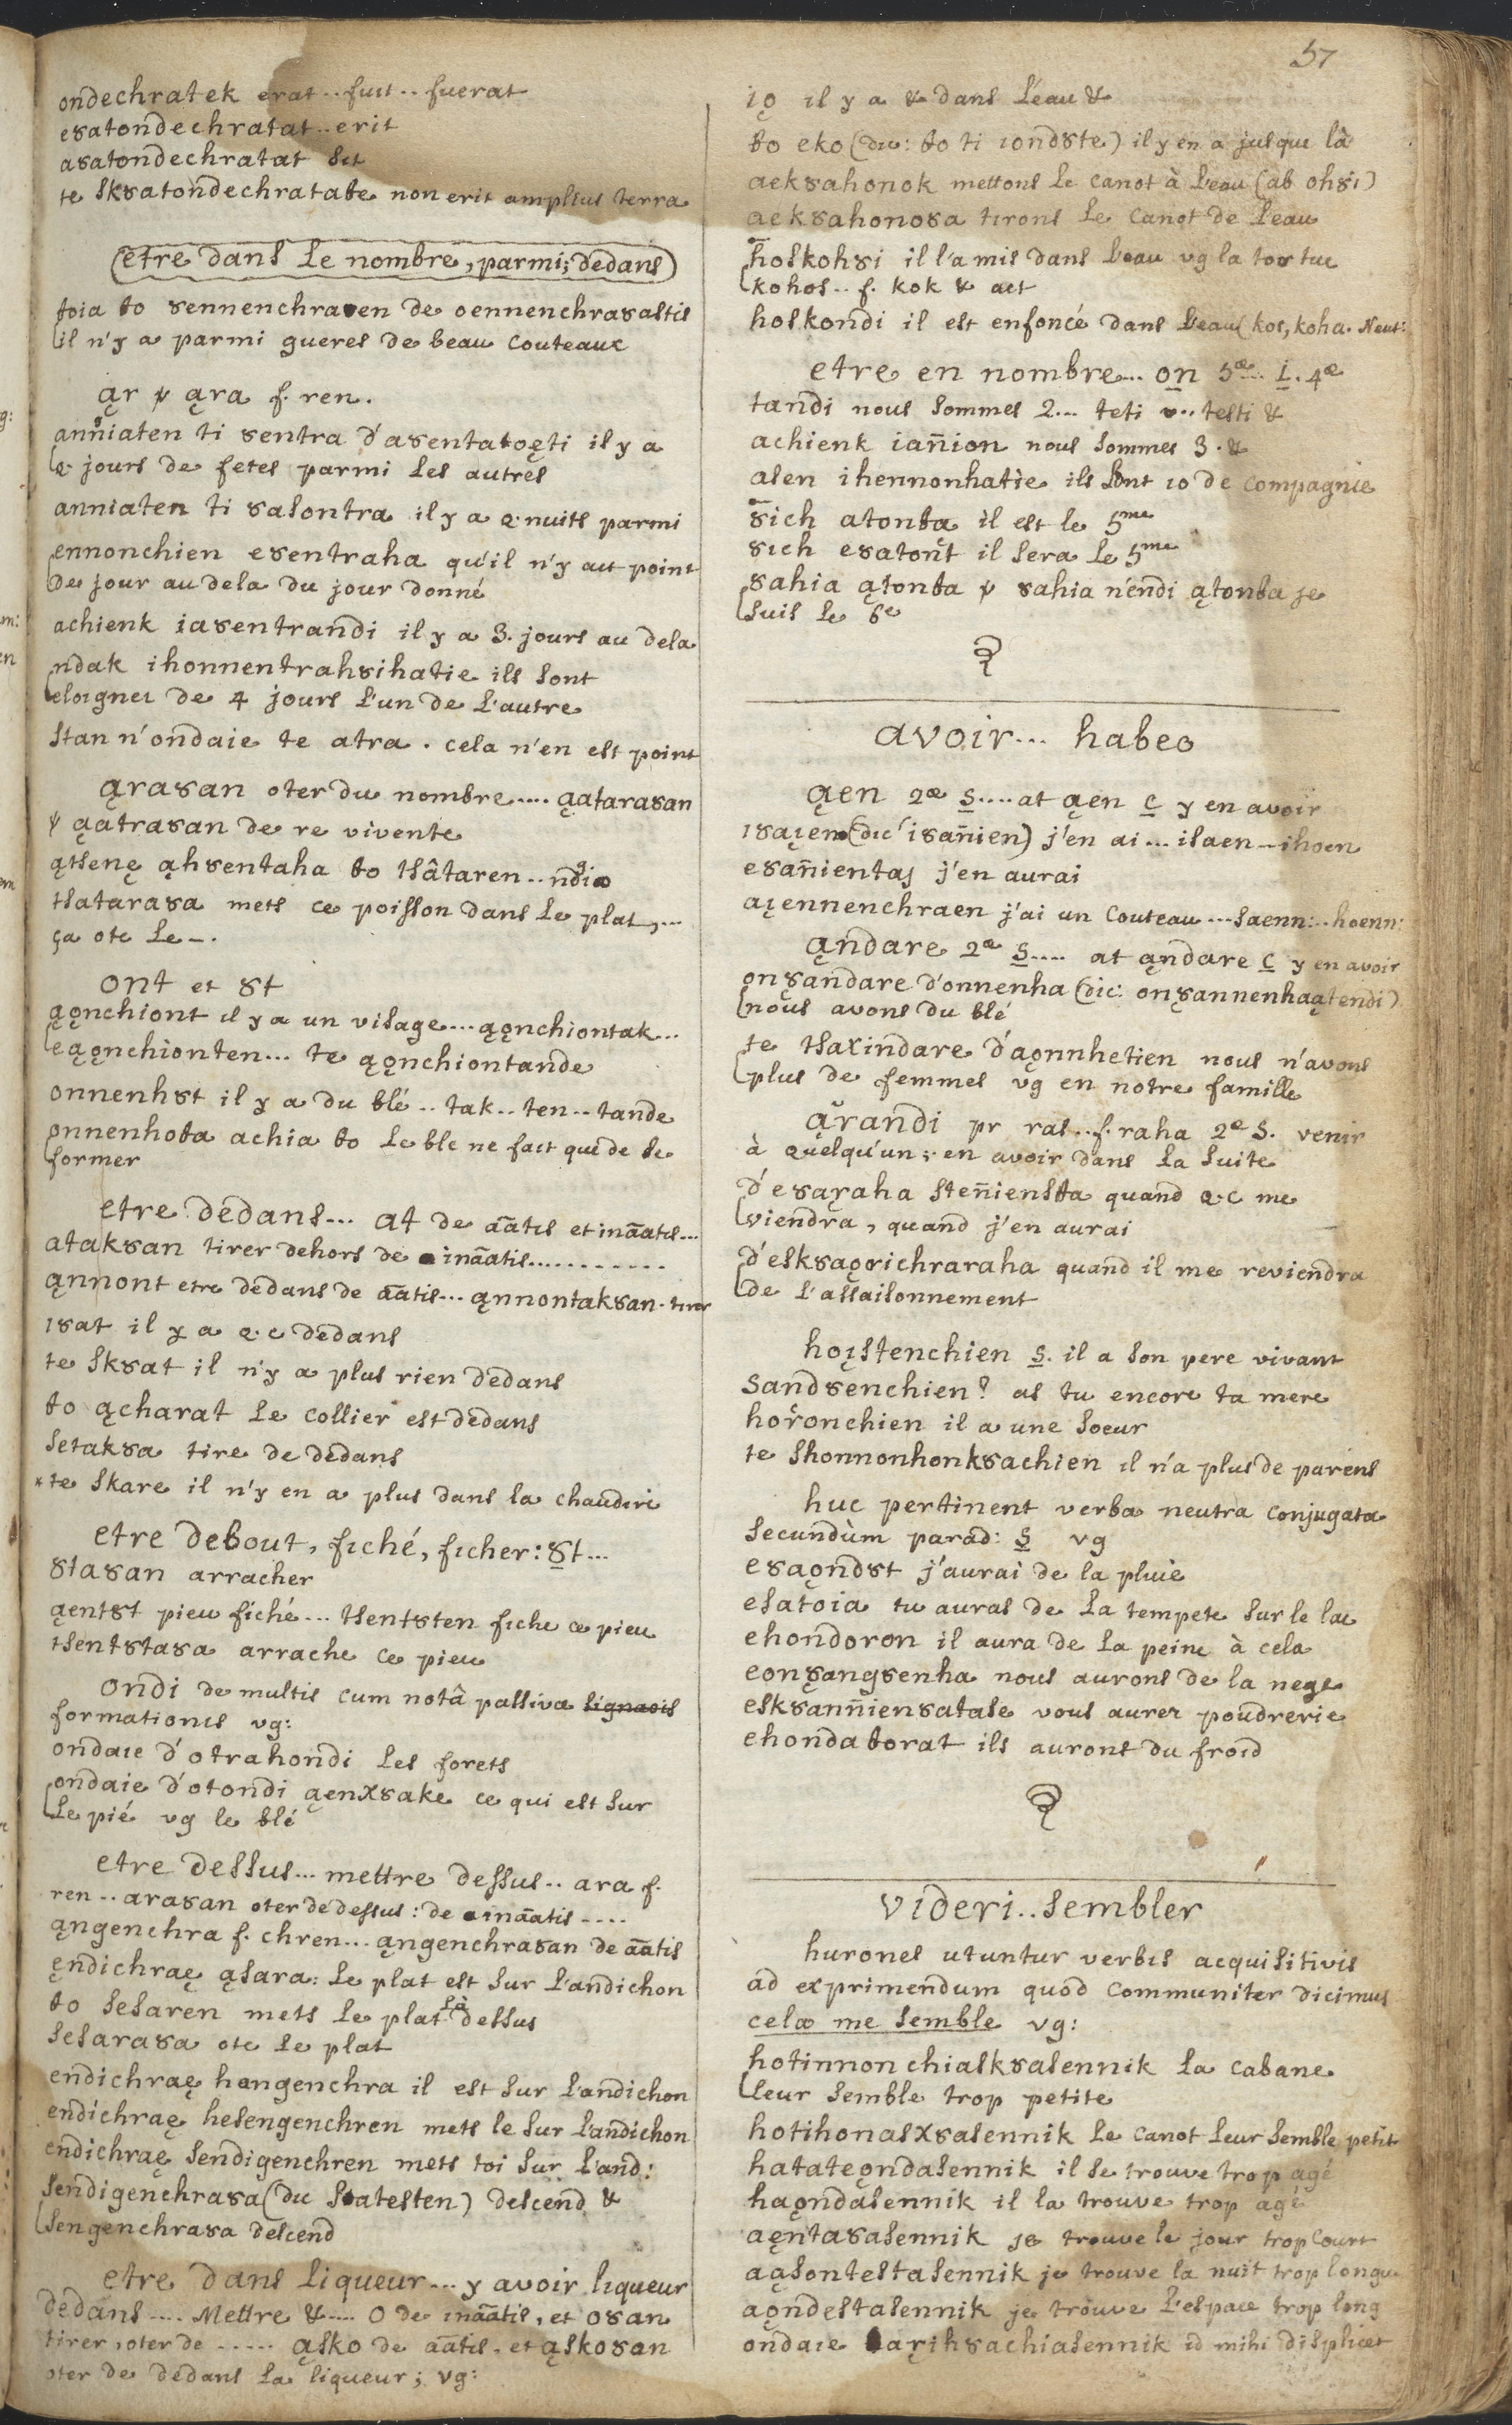 57
ondechratek erat..fuit..fuerat
e8atondechratat..erit
a8atondechratat sit
te sk8atondechratate non erit amplius terra
etre dans le nombre, parmi; dedans
toia to 8ennenchraen de oennenchra8astis
il n'y a parmi gueres de beau couteaux
ąr ąra f. ren.
anniaten ti 8entra d'a8entatoęti il y a
q. jours de fetes parmi les autres
anniaten ti 8asontra il y a q. nuits parmi
ennonchien e8entraha qu'il n'y ait point
de jour au dela du jour donné
achienk ia8entrandi il y a 3. jours au dela
ndak ihonnentrah8ihatie ils sont
eloignez de 4 jours l'un de l'autre
stan n'ondaie te atra. cela n'en est point
ąra8an oter du nombre..... ąatara8an
ąatra8an de re vivente
ątsenę ąh8entaha to tsâtaren..ndio
tsatara8a mets ce poisson dans le plat,...
ça ote le_.
ont et 8t
ąǫnchiont il y a un visage.... ąǫnchiontak...
eąǫnchionten... te ąǫnchiontande
onnenh8t il y a du blé..tak..ten..tande
onnenhota achia to le ble ne fait que de se
former
etre dedans... at de aātis et ināatis...
atak8an tirer dehors de ināatis...........
ąnnont etre dedans de aātis... ąnnontak8an. tirer
i8at il y a q.c dedans
te sk8at il n'y a plus rien dedans
to ącharat le collier est dedans
setak8a tire de dedans
*te skare il n'y en a plus dans la chaudire
etre debout, fiché, ficher: 8t...
8ta8an arracher
ąent8t pieu fiché... tsent8ten fiche ce pieu
tsent8ta8a arrache ce pieu
ondi de multis cum notâ passiva
formationis vg:
ondaie d'otrahondi les forets
ondaie d'otondi ąenχ8ake ce qui est sur
le pié vg le blé
etre dessus... mettre dessus..ara f.
ren..ara8an oter de dessus: de ināatis....
ąngenchra f. chren... ąngenchra8an de aātis
ęndichraę ąsara: le plat est sur l'andichon
to sesaren mets le plat là dessus
sesara8a ote le plat
endichraę hangenchra il est sur l'andichon
endichraę hesengenchren mets le sur l'andichon
endichraę sendigenchren mets toi sur l'and:
sendigenchra8a (dic satesten) descend &
sengenchra8a descend
etre dans liqueur... y avoir liqueur
dedans.... Mettre &.... o de ināatis, et o8an
tirer, oter de ..... ąsko de aātis. et ąsko8an
oter de dedans la liqueur; vg:
iǫ il y a & dans l'eau &
to eko (dic: to ti iond8te) il y en a jusque là
aek8ahonok mettons le canot à l'eau (ab oh8i)
aek8ahono8a tirons le canot de l'eau
hoskoh8i il l'a mis dans l'eau vg la tortue
kohos.. f. kok & act
hoskondi il est enfoncé dans l'eau (kos, koha. Neut:
etre en nombre... on 5æ... i. 4æ
tandi nous sommes 2... teti.. testi &
achienk iañion nous sommes 3. &
asen ihennonhatie ils sont 10 de compagnie
8ich atonta il est le 5me
8ich e8atont il sera le 5me
8ahia ątonta 8ahia n'endi ątonta je
suis le 6e
avoir... habeo
ąen 2æ S.... at ąen C y en avoir
i8aien (dic i8añien) j'en ai... isaen_ihoen
e8añientaj j'en aurai
aiennenchraen j'ai un couteau...saenn:..hoenn:
ąndare 2æ S.... at ąndare C y en avoir
on8andare d'onnenha (dic: on8annenhaątendi)
nous avons du blé
te tsaxindare d'aǫnnhetien nous n'avons
plus de femmes vg en notre famille
ąrandi pr ras..f. raha 2æ S. venir
à quelqu'un; en avoir dans la suite
d'e8araha steñiensta quand q.c me
viendra, quand j'en aurai
d'esk8aǫrichraraha quand il me reviendra
de l'assaisonnement
hoistenchien S. il a son pere vivant
sand8enchien? as tu encore ta mere
horonchien il a une soeur
te shonnonhonk8achien il n'a plus de parens
huc pertinent verba neutra conjugata
secundùm parad: S vg
e8aǫnd8t j'aurai de la pluie
esatoia tu auras de la tempete sur le lac
ehondoron il aura de la peine à cela
eon8ang8enha nous aurons de la nege
esk8annien8atase vous aurez poudrerie
ehondatorat ils auront du froid
videri..sembler
hurones utuntur verbis acquisitivis
ad exprimendum quod communiter dicimus
cela me semble vg:
hotinnonchiask8asennik la cabane
leur semble trop petite
hotihonasχ8asennik le canot leur semble petit
hatateǫndasennik il se trouve trop agé
haǫndasennik il la trouve trop agé
aęnta8asennik je trouve le jour trop court
aąsontestasennik je trouve la nuit trop longue
aǫndestasennik je trouve l'espace trop long
ondaie arih8achiasennik id mihi displicet